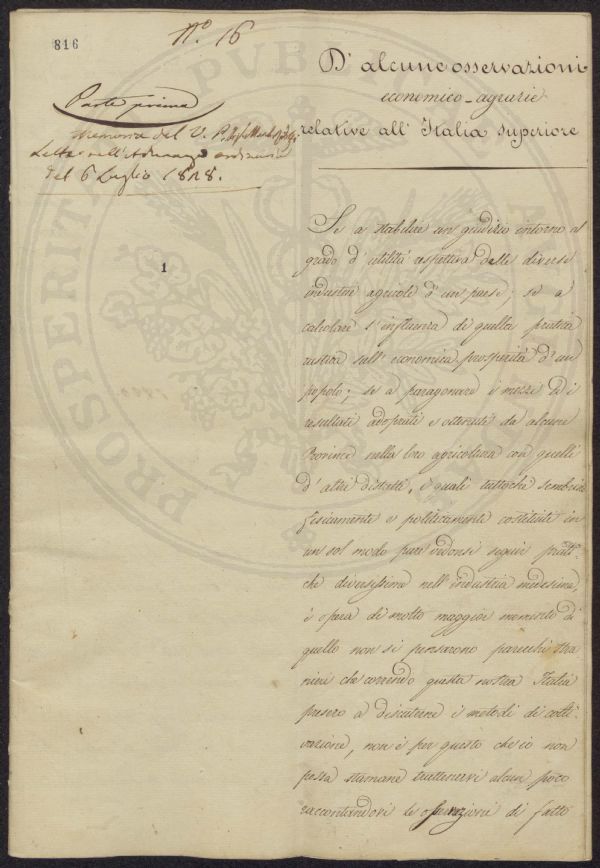 816
N.º 16
D' alcune osservazioni
economico-agrarie
relative all' Italia superiore
Parte prima
Memoria del
Letta nell'Adunanza ordinaria
del 6 Luglio 1828.
1
Se a stabilire un giudizio intorno al
grado d' utilità rispettiva delle diverse
industrie agricole d' un paese; se a
calcolare l' influenza di quella pratica
rustica sull' economica prosperità d' un
popolo; se a paragonare i mezzi ed i
resultati adoprati e ottenuti da alcune
Provincie nella loro agricoltura con quelli
d' altri distretti, i quali tuttochè sembrino
fisicamente e politicamente costituite in
un sol modo pure vedonsi seguir prati-
che diversissime nell' industria medesima,
è opera di molto maggior momento di
quello non si pensarono parecchi stra
nieri che correndo questa nostra Italia
presero a discuterne i metodi di colti-
vazione, non è per questo che io non
possa stamane trattenervi alcun poco
raccontandovi le operazioni di fatto
PROSPERITATI PUBLICAE